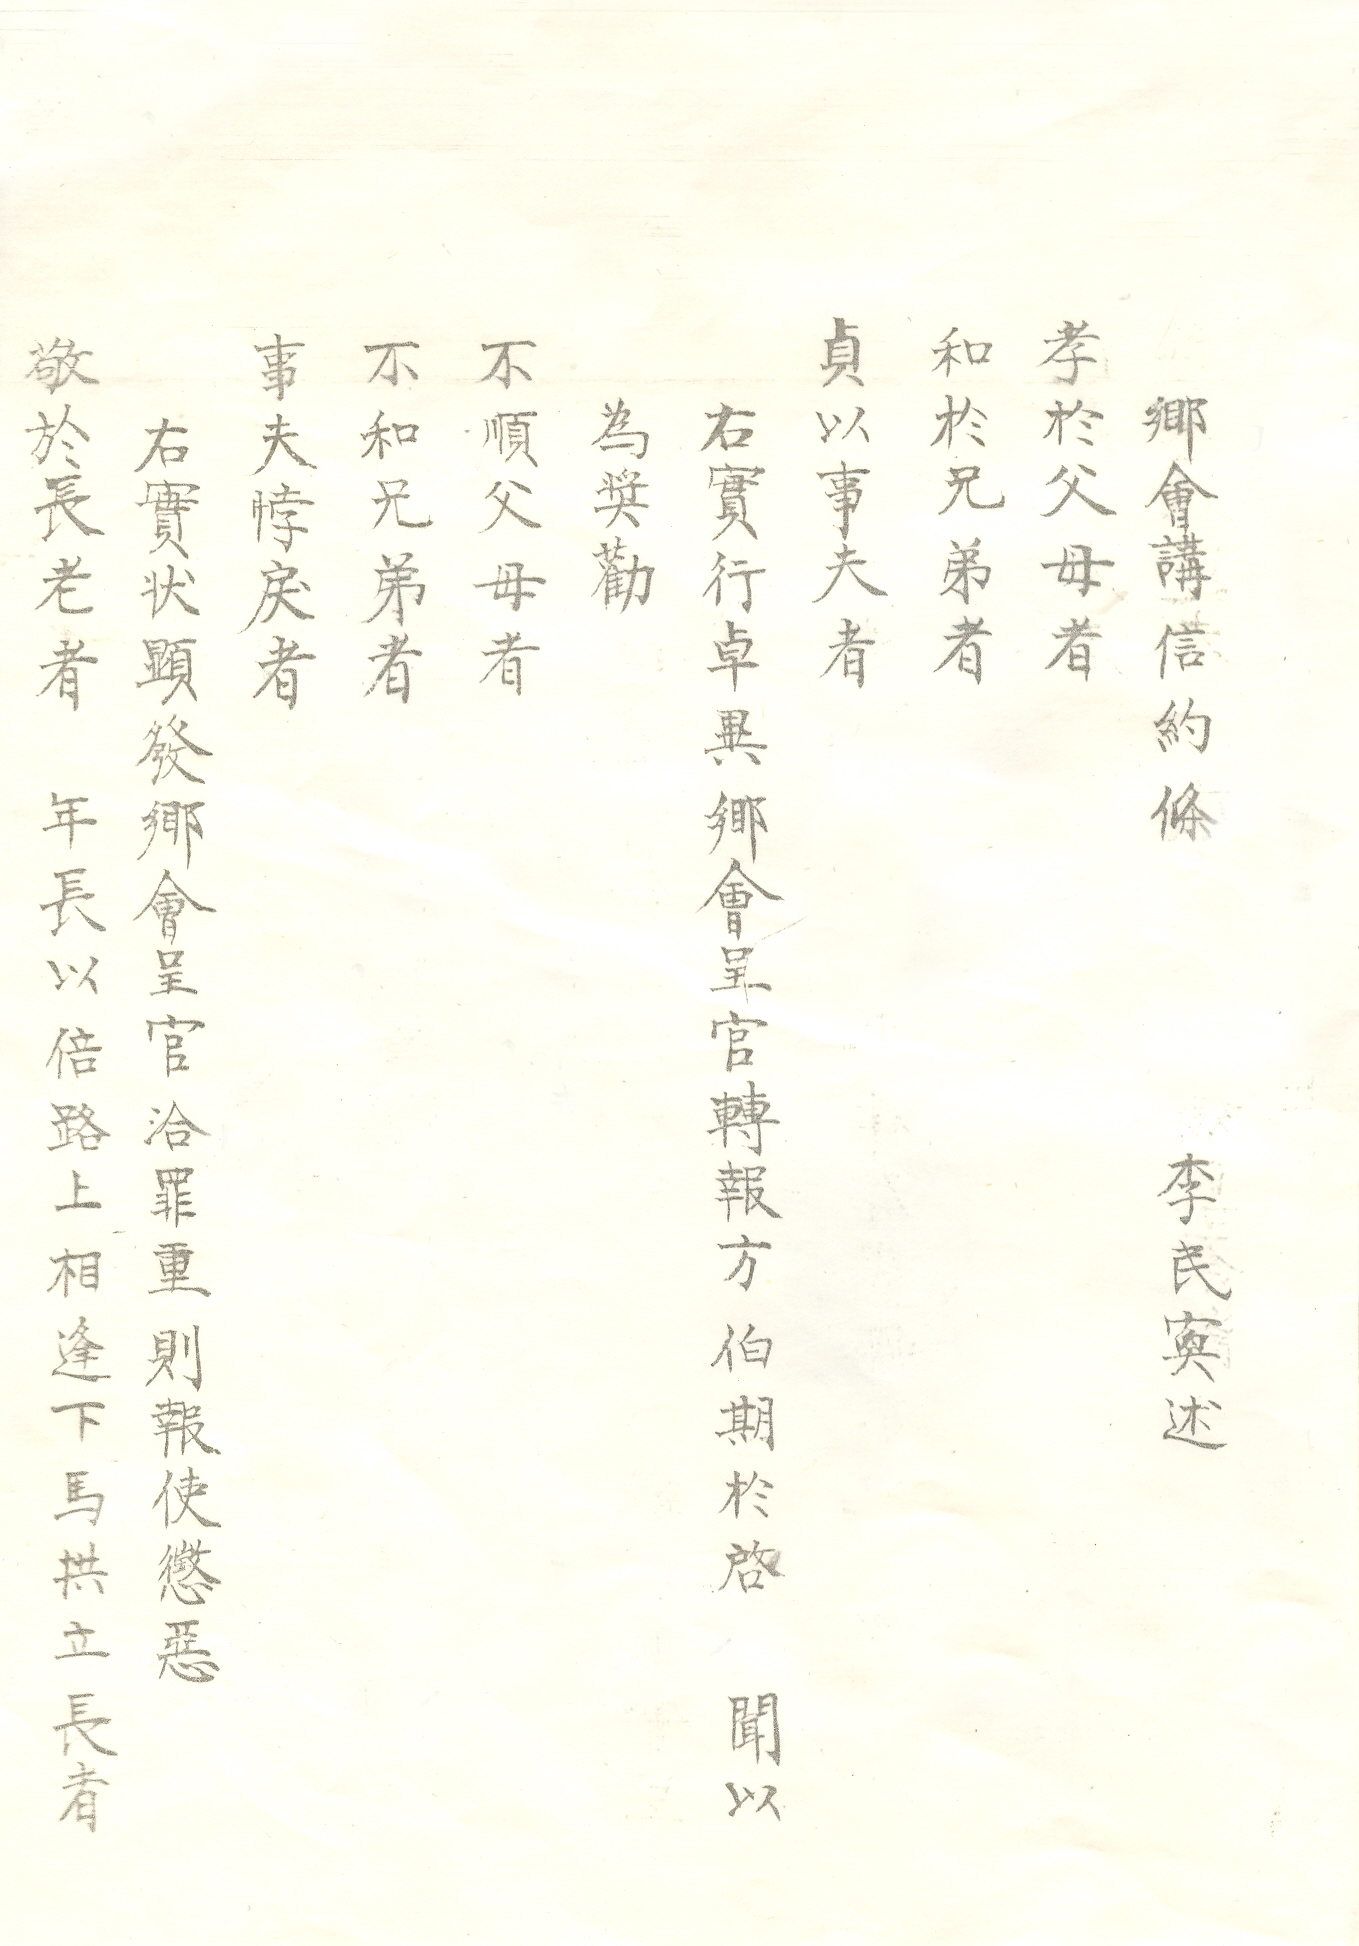 鄉會講信約條 李民寏述
孝於父母者
和於兄弟者
貞以事夫者
右實行卓異鄉會呈官轉報方伯期於啓 聞以
為奨勸
不順父母者
不和兄弟者
事夫悖戾者
右實状顕發鄉會呈官治罪重則報使懲惡
敬於長老者 年長以倍路上相逢下馬拱立長者